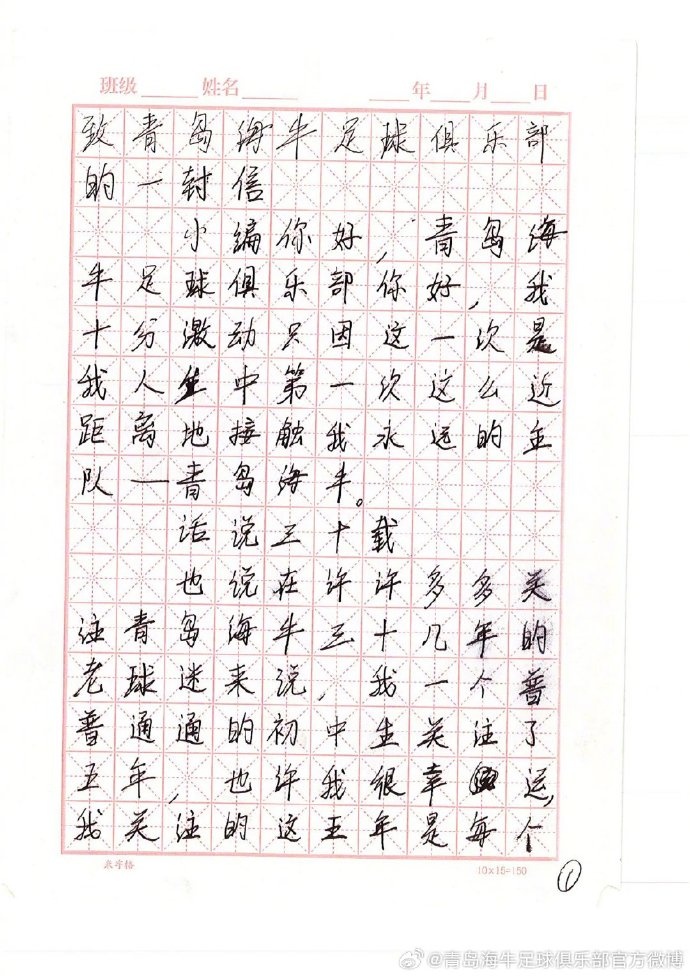 班级 姓名 年 月 日
致青岛海牛足球俱乐部
的一封信
小编你好，青岛海
牛足球俱乐部你好，我
十分激动只因这一次是
我人生中第一次这么近
距离地接触我永远的主
队—青岛海牛。
话说三十载
也说在许许多多关
注青岛海牛三十几年的
老球迷来说，我一个普
普通通的初中生关注了
五年，也许我很幸运，
我关注的这五年是每个
米字格
10×15=150
1
@青岛海牛足球俱乐部官方微博